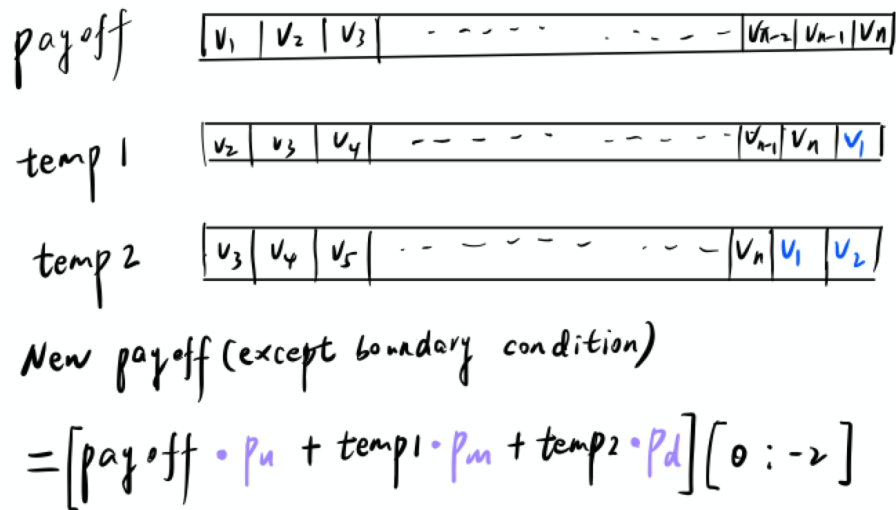 payoff V₁ V₂ V₃ Vn-2 Vn-1 Vn
temp 1 V₂ V₃ V₄ Vn-1 Vn V₁
temp 2 V₃ V₄ V₅ Vn V₁ V₂
New payoff (except boundary condition)
= [payoff · Pu + temp1 · Pm + temp2 · Pd] [0 : -2]